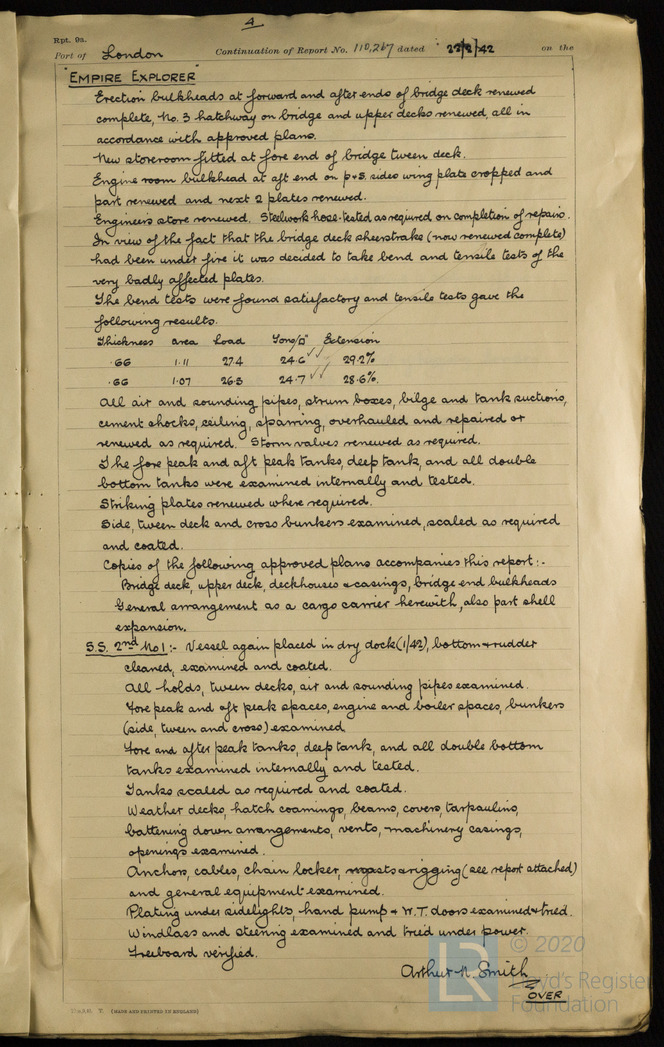 4
Rpt. 9a.
Port of London Continuation of Report No. 110,267 dated 22/2/42 on the
"EMPIRE EXPLORER"
Erection bulkheads at forward and after ends of bridge deck renewed
complete, No. 3 hatchway on bridge and upper decks renewed, all in
accordance with approved plans.
New storeroom fitted at fore end of bridge tween deck.
Engine room bulkhead at aft end on p & s. sides wing plate cropped and
part renewed and next 2 plates renewed.
Engineers store renewed. Steelwork hose-tested as required on completion of repairs.
In view of the fact that the bridge deck sheerstrake (now renewed complete)
had been under fire it was decided to take bend and tensile tests of the
very badly affected plates.
The bend tests were found satisfactory and tensile tests gave the
following results.
Thickness area Load Tons/□" Extension
.66 1.11 27.4 24.6 ✓✓ 29.2%
.66 1.07 26.3 24.7 ✓✓ 28.6%.
All air and sounding pipes, strum boxes, bilge and tank suctions,
cement chocks, ceiling, sparring, overhauled and repaired or
renewed as required. Storm valves renewed as required.
The fore peak and aft peak tanks, deep tank, and all double
bottom tanks were examined internally and tested.
Striking plates renewed where required.
Side, tween deck and cross bunkers examined, scaled as required
and coated.
Copies of the following approved plans accompanies this report:-
Bridge deck, upper deck, deckhouses & casings, bridge end bulkheads
General arrangement as a cargo carrier herewith, also part shell
expansion.
S.S. 2nd No 1:- Vessel again placed in dry dock (1/42), bottom & rudder
cleaned, examined and coated.
All holds, tween decks, air and sounding pipes examined.
Fore peak and aft peak spaces, engine and boiler spaces, bunkers
(side, tween and cross) examined
Fore and after peak tanks, deep tank, and all double bottom
tanks examined internally and tested.
Tanks scaled as required and coated.
Weather decks, hatch coamings, beams, covers, tarpaulins,
battening down arrangements, vents, machinery casings,
openings examined.
Anchors, cables, chain locker, masts & rigging (see report attached)
and general equipment examined.
Plating under sidelights, hand pump & W.T. doors examined & tried.
Windlass and steering examined and tried under power.
Freeboard verified.
Arthur N. Smith
OVER
(MADE AND PRINTED IN ENGLAND)
LR
© 2020
Lloyd's Register
Foundation